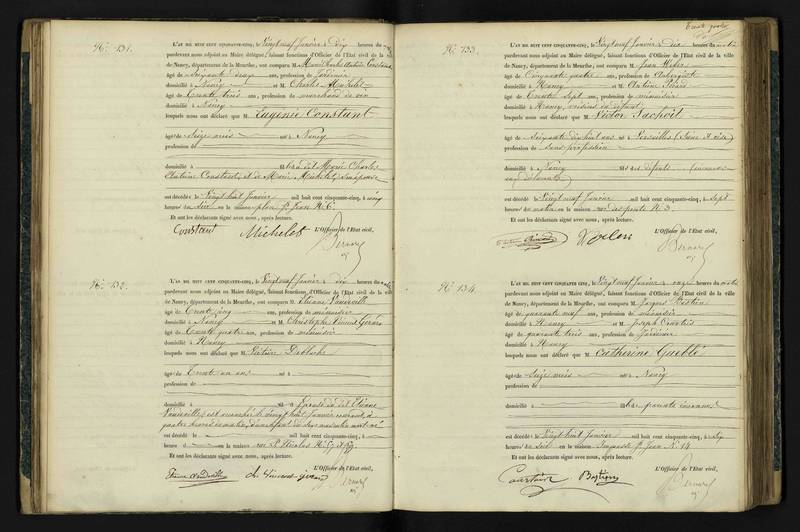 N° 131.
L'AN MIL HUIT CENT CINQUANTE-CINQ, le Vingt neuf Janvier à dix heures du matin
pardevant nous adjoint au Maire délégué, faisant fonctions d'Officier de l'Etat civil de la ville
de Nancy, département de la Meurthe, ont comparu M. Marie Charles Antoine Constant
âgé de ans, profession de
domicilié à Nancy et M. Charles Michelet
âgé de Trente trois ans, profession de marchand de vin
domicilié à Nancy
lesquels nous ont déclaré que M. Eugénie Constant
âgé de Seize mois né à Nancy
profession de
domicilié à fils de Marie Charles
Antoine Constant et de Marie Michelet, son épouse
est décédé le Vingt huit Janvier mil huit cent cinquante-cinq, à cinq
heures du soir en la maison place St Jean N° 6.
Et ont les déclarants signé avec nous, après lecture.
Constant Michelet L'Officier de l'Etat civil,
Bernard
N° 132.
L'AN MIL HUIT CENT CINQUANTE-CINQ, le Vingt neuf Janvier à dix heures du matin
pardevant nous adjoint au Maire délégué, faisant fonctions d'Officier de l'Etat civil de la ville
de Nancy, département de la Meurthe, ont comparu M. Etienne Vaudeville
âgé de Trente cinq ans, profession de menuisier
domicilié à Nancy et M. Christophe Vincent Gérard
âgé de Trente quatre ans, profession de menuisier
domicilié à Nancy
lesquels nous ont déclaré que M.
âgé de Trente un ans né à
profession de
domicilié à Epouse du dit Etienne
Vaudeville est accouchée le vingt huit Janvier courant, à
quatre heures du matin, d'un enfant du sexe masculin mort né
est décédé le mil huit cent cinquante-cinq, à
heures du en la maison rue St Nicolas N° 57.
Et ont les déclarants signé avec nous, après lecture.
L'Officier de l'Etat civil,
ch Vincent gerard
Bernard
N° 133.
L'AN MIL HUIT CENT CINQUANTE-CINQ, le Vingt neuf Janvier à dix heures du matin
pardevant nous adjoint au Maire délégué, faisant fonctions d'Officier de l'Etat civil de la ville
de Nancy, département de la Meurthe, ont comparu M. Jean
âgé de Cinquante quatre ans, profession de Aubergiste
domicilié à Nancy et M. Antoine
âgé de Trente sept ans, profession de menuisier
domicilié à Nancy, voisins du défunt
lesquels nous ont déclaré que M. Victor Pachoit
âgé de Soixante dix huit ans né à Versailles (Seine et Oise)
profession de Sans profession
domicilié à Nancy
est décédé le Vingt neuf Janvier mil huit cent cinquante-cinq, à sept
heures du matin en la maison rue des ponts N° 3
Et ont les déclarants signé avec nous, après lecture.
L'Officier de l'Etat civil,
Bernard
N° 134.
L'AN MIL HUIT CENT CINQUANTE-CINQ, le Vingt neuf Janvier à onze heures du matin
pardevant nous adjoint au Maire délégué, faisant fonctions d'Officier de l'Etat civil de la ville
de Nancy, département de la Meurthe, ont comparu M. Jacques Bastien
âgé de quarante neuf ans, profession de menuisier
domicilié à Nancy et M. Joseph
âgé de quarante trois ans, profession de
domicilié à Nancy
lesquels nous ont déclaré que M. Catherine Gueblé
âgé de Seize mois né à Nancy
profession de
domicilié à
est décédé le Vingt huit Janvier mil huit cent cinquante-cinq, à
heures du soir en la maison St Jean N° 14
Et ont les déclarants signé avec nous, après lecture.
L'Officier de l'Etat civil,
Bastien
Bernard